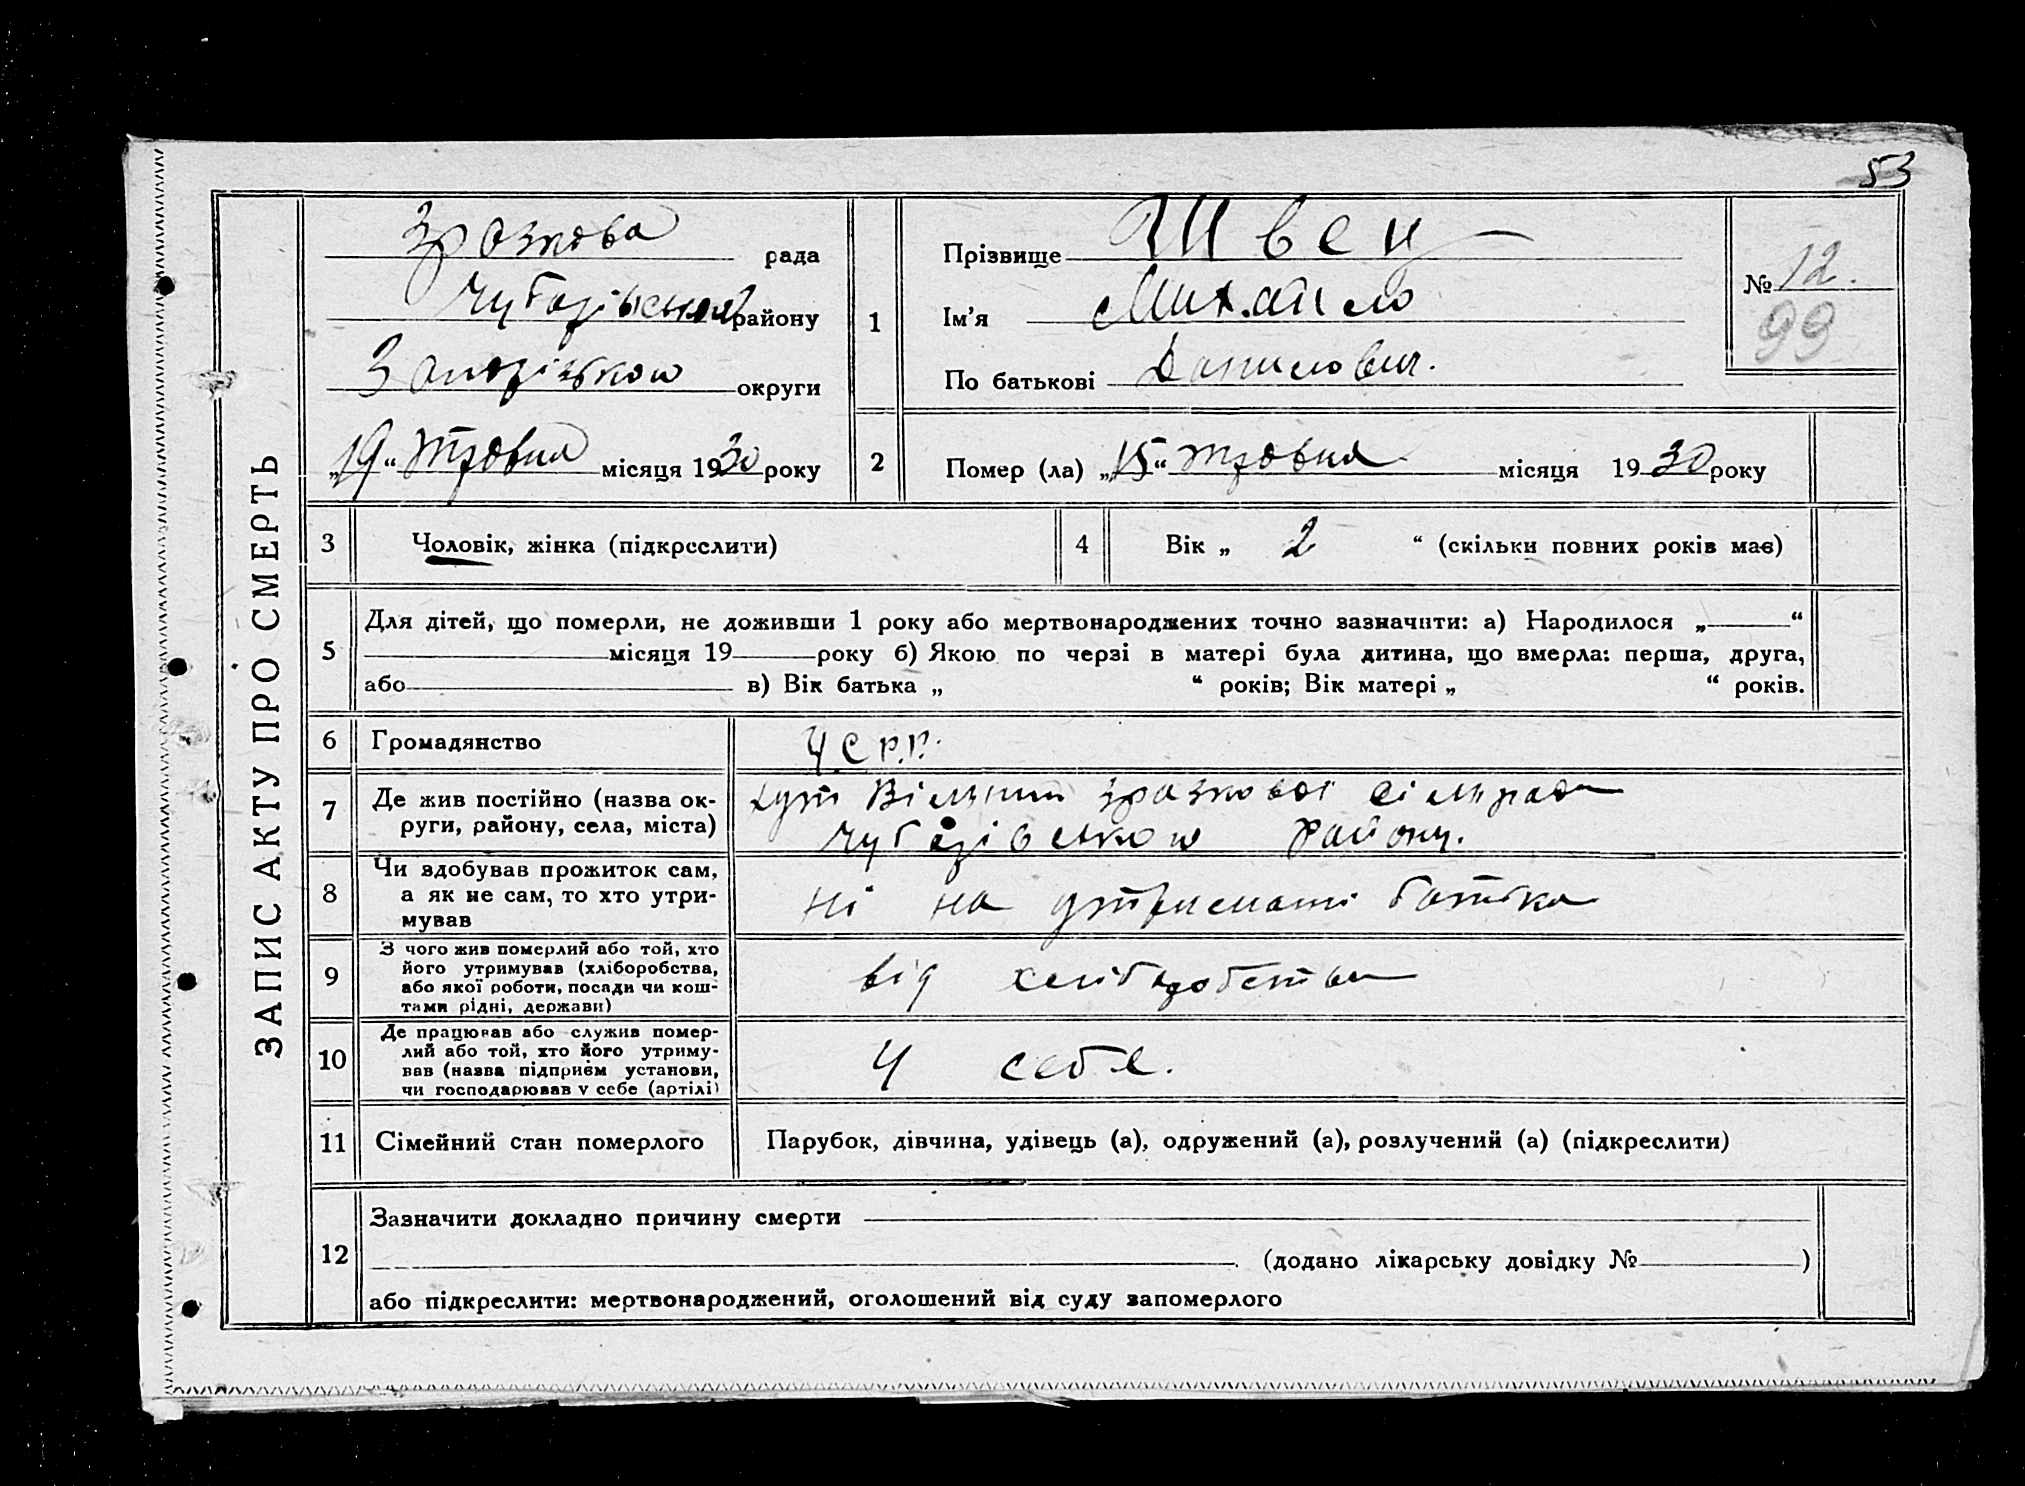 53
ЗАПИС АКТУ ПРО СМЕРТЬ
Зразкова рада
Чубарівського району
Запорізькою округи
„19“ травня місяця 1930 року
1
Прізвище Швец
Ім'я Михайло
По батькові Данилович.
№ 12.
99
2
Помер (ла) „15“ травня місяця 1930 року
3 Чоловік, жінка (підкреслити)
4 Вік „ 2 “ (скільки повних років має)
5
Для дітей, що померли, не доживши 1 року або мертвонароджених точно зазначити: а) Народилося „ “
місяця 19 року б) Якою по черзі в матері була дитина, що вмерла: перша, друга,
або в) Вік батька „ “ років; Вік матері „ “ років.
6 Громадянство У.С.Р.Р.
7
Де жив постійно (назва ок-
руги, району, села, міста)
хут Вільний зразкової сільради
Чубарівською району.
8
Чи здобував прожиток сам,
а як не сам, то хто утри-
мував
ні на утримані батька
9
З чого жив померлий або той, хто
його утримував (хліборобства,
або якої роботи, посади чи кош-
тами рідні, держави)
від хліборобства
10
Де працював або служив помер-
лий або той, хто його утриму-
вав (назва підприєм установи,
чи господарював у себе (артілі)
У себе.
11 Сімейний стан померлого
Парубок, дівчина, удівець (а), одружений (а), розлучений (а) (підкреслити)
12
Зазначити докладно причину смерти
(додано лікарську довідку № )
або підкреслити: мертвонароджений, оголошений від суду запомерлого